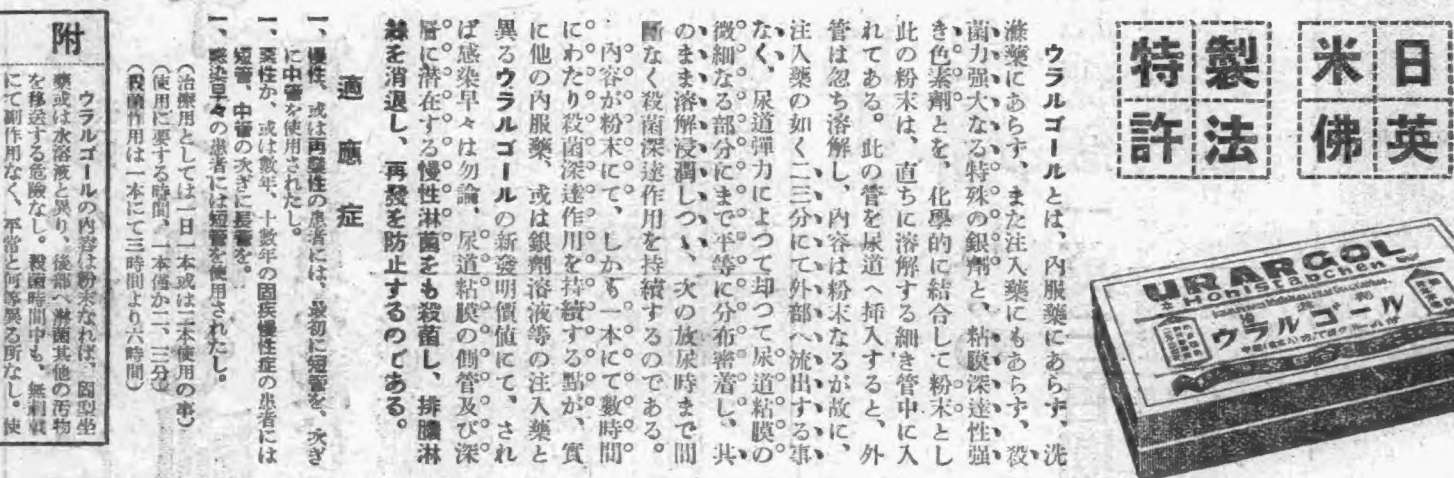 日英
米佛
製法
特許
URARGOL
Honistäbchen
ウラルゴール
ウラルゴールとは、内服藥にあらず、洗
滌藥にあらず、また注入藥にもあらず、殺
菌力強大なる特殊の銀劑と、粘膜深達性強
き色素劑とを、化學的に結合して粉末とし
此の粉末は、直ちに溶解する細き管中に入
れてある。此の管を尿道へ挿入すると、外
管は忽ち溶解し、内容は粉末なるが故に、
注入藥の如く二三分にて外部へ流出する事
なく、尿道彈力によつて却つて尿道粘膜の
微細なる部分にまで平等に分布密着し、其
のまま溶解浸潤しつゝ、次の放尿時まで間
斷なく殺菌深達作用を持續するのである。
内容が粉末にて、しかも一本にて數時間
にわたり殺菌深達作用を持續する點が、實
に他の内服藥、或は銀劑溶液等の注入藥と
異るウラルゴールの新發明價値にて、され
ば感染早々は勿論、尿道粘膜の側管及び深
層に潜在する慢性淋菌をも殺菌し、排膿淋
絲を消退し、再發を防止するのである。
適應症
一、慢性、或は再發性の患者には、最初に短管を、次ぎ
に中管を使用されたし。
一、惡性か、或は數年、十數年の固疾慢性症の患者には
短管、中管の次ぎに長管を。
一、感染早々の患者には短管を使用されたし。
(治療用としては一日一本或は二本使用の事)
(使用に要する時間、一本僅か二、三分)
(殺菌作用は一本にて三時間より六時間)
附
ウラルゴールの内容は粉末なれば、固型坐
藥或は水溶液と異り、後部へ淋菌其他の汚物
を移送する危險なし。殺菌時間中も、無刺戟
にて副作用なく、平常と何等異る所なし。使